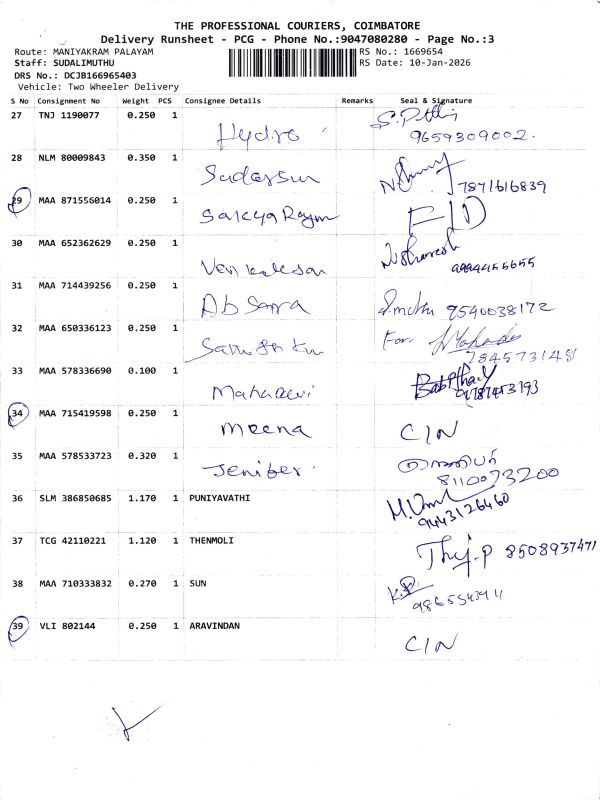 THE PROFESSIONAL COURIERS, COIMBATORE
Delivery Runsheet - PCG - Phone No.:9047080280 - Page No.:3
Route: MANIYAKRAM PALAYAM RS No.: 1669654
Staff: SUDALIMUTHU RS Date: 10-Jan-2026
DRS No.: DCJB166965403
Vehicle: Two Wheeler Delivery
S No Consignment No Weight PCS Consignee Details Remarks Seal & Signature
27 TNJ 1190077 0.250 1 Hydro 9659309002.
28 NLM 80009843 0.350 1 Sudarsun 7871616839
29 MAA 871556014 0.250 1
30 MAA 652362629 0.250 1 Venkatesan 9994455655
31 MAA 714439256 0.250 1 9540038172
32 MAA 650336123 0.250 1 For 784573148
33 MAA 578336690 0.100 1 Mahadevi
34 MAA 715419598 0.250 1 Meena C/N
35 MAA 578533723 0.320 1 Jenifer 8110073200
36 SLM 386850685 1.170 1 PUNIYAVATHI 9443126460
37 TCG 42110221 1.120 1 THENMOLI 8508937471
38 MAA 710333832 0.270 1 SUN
39 VLI 802144 0.250 1 ARAVINDAN C/N